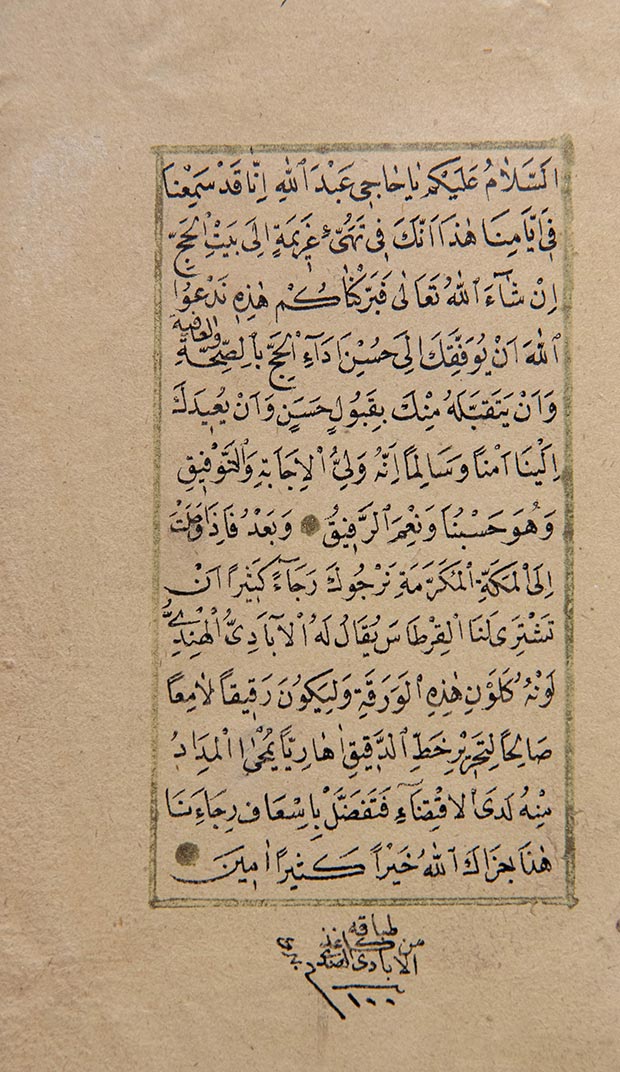 اَلسَّلَامُ عَلَيْكُمْ يَا حَاجِى عَبْدَ اللهِ اِنَّا قَدْ سَمِعْنَا
فِى اَيَّامِنَا هٰذَا اَنَّكَ فِى تَهَىُّءِ عَزِيمَةٍ اِلَى بَيْتِ الْحَجِّ
اِنْ شَآءَ اللهُ تَعَالٰى فَبَرَكْنَاكُمْ هٰذِهِ نَدْعُوا
اللهَ اَنْ يُوَفِّقَكَ اِلَى حُسْنِ اَدَآءِ الْحَجِّ بِالصِّحَّةِ وَالْعَافِيَةِ
وَاَنْ يَتَقَبَّلَهُ مِنْكَ بِقَبُولٍ حَسَنٍ وَاَنْ يُعِيدَكَ
اِلَيْنَا اٰمْنًا وَسَالِمًا اِنَّهُ وَلِىُّ الْاِجَابَةِ وَالتَّوْفِيقِ
وَهُوَ حَسْبُنَا وَنِعْمَ الرَّفِيقُ وَبَعْدُ فَاِذَا وَصَلْتَ
اِلَى الْمَكَّةِ الْمُكَرَّمَةِ نَرْجُوكَ رَجَآءً كَثِيرًا اَنْ
تَشْتَرِىَ لَنَا الْقِرْطَاسَ يُقَالُ لَهُ الْاٰبَادِىُّ الْهِنْدِىُّ
لَوْنُهُ كَلَوْنِ هٰذِهِ الْوَرَقَةِ وَلِيَكُونَ رَقِيقًا لَامِعًا
صَالِحًا لِتَحْرِيرِ خَطِّ الدَّقِيقِ هَارِيًّا يُمْحٰى الْمِدَادُ
مِنْهُ لَدَى الْاِقْتِضَآءِ فَتَفَضَّلْ بِاِسْعَافِ رِجَاءِنَا
هٰذَا جَزَاكَ اللهُ خَيْرًا كَثِيرًا اٰمِينَ
طباقه
من كاغذ
الابادى الهندى
١٠٠